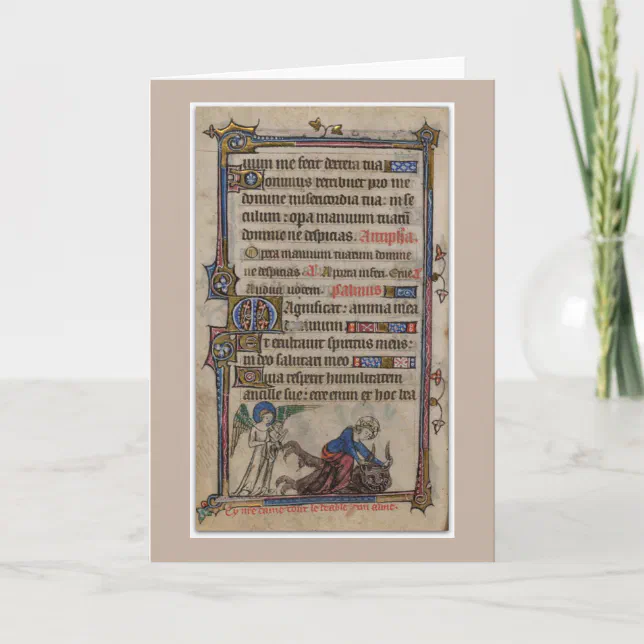 uum me fecit dextera tua
Dominus retribuet pro me
domine misericordia tua: in se
culum: opera manuum tuarum
domine ne despicias. Antiph̄a.
Opera manuum tuarum domine
ne despicias. A porta inferi. Erue
Audivi vocem. Psalmus
Magnificat: anima mea
Et exultavit spiritus meus:
in deo salutari meo
Quia respexit humilitatem
ancille sue: ecce enim ex hoc bea
Cy nre dame